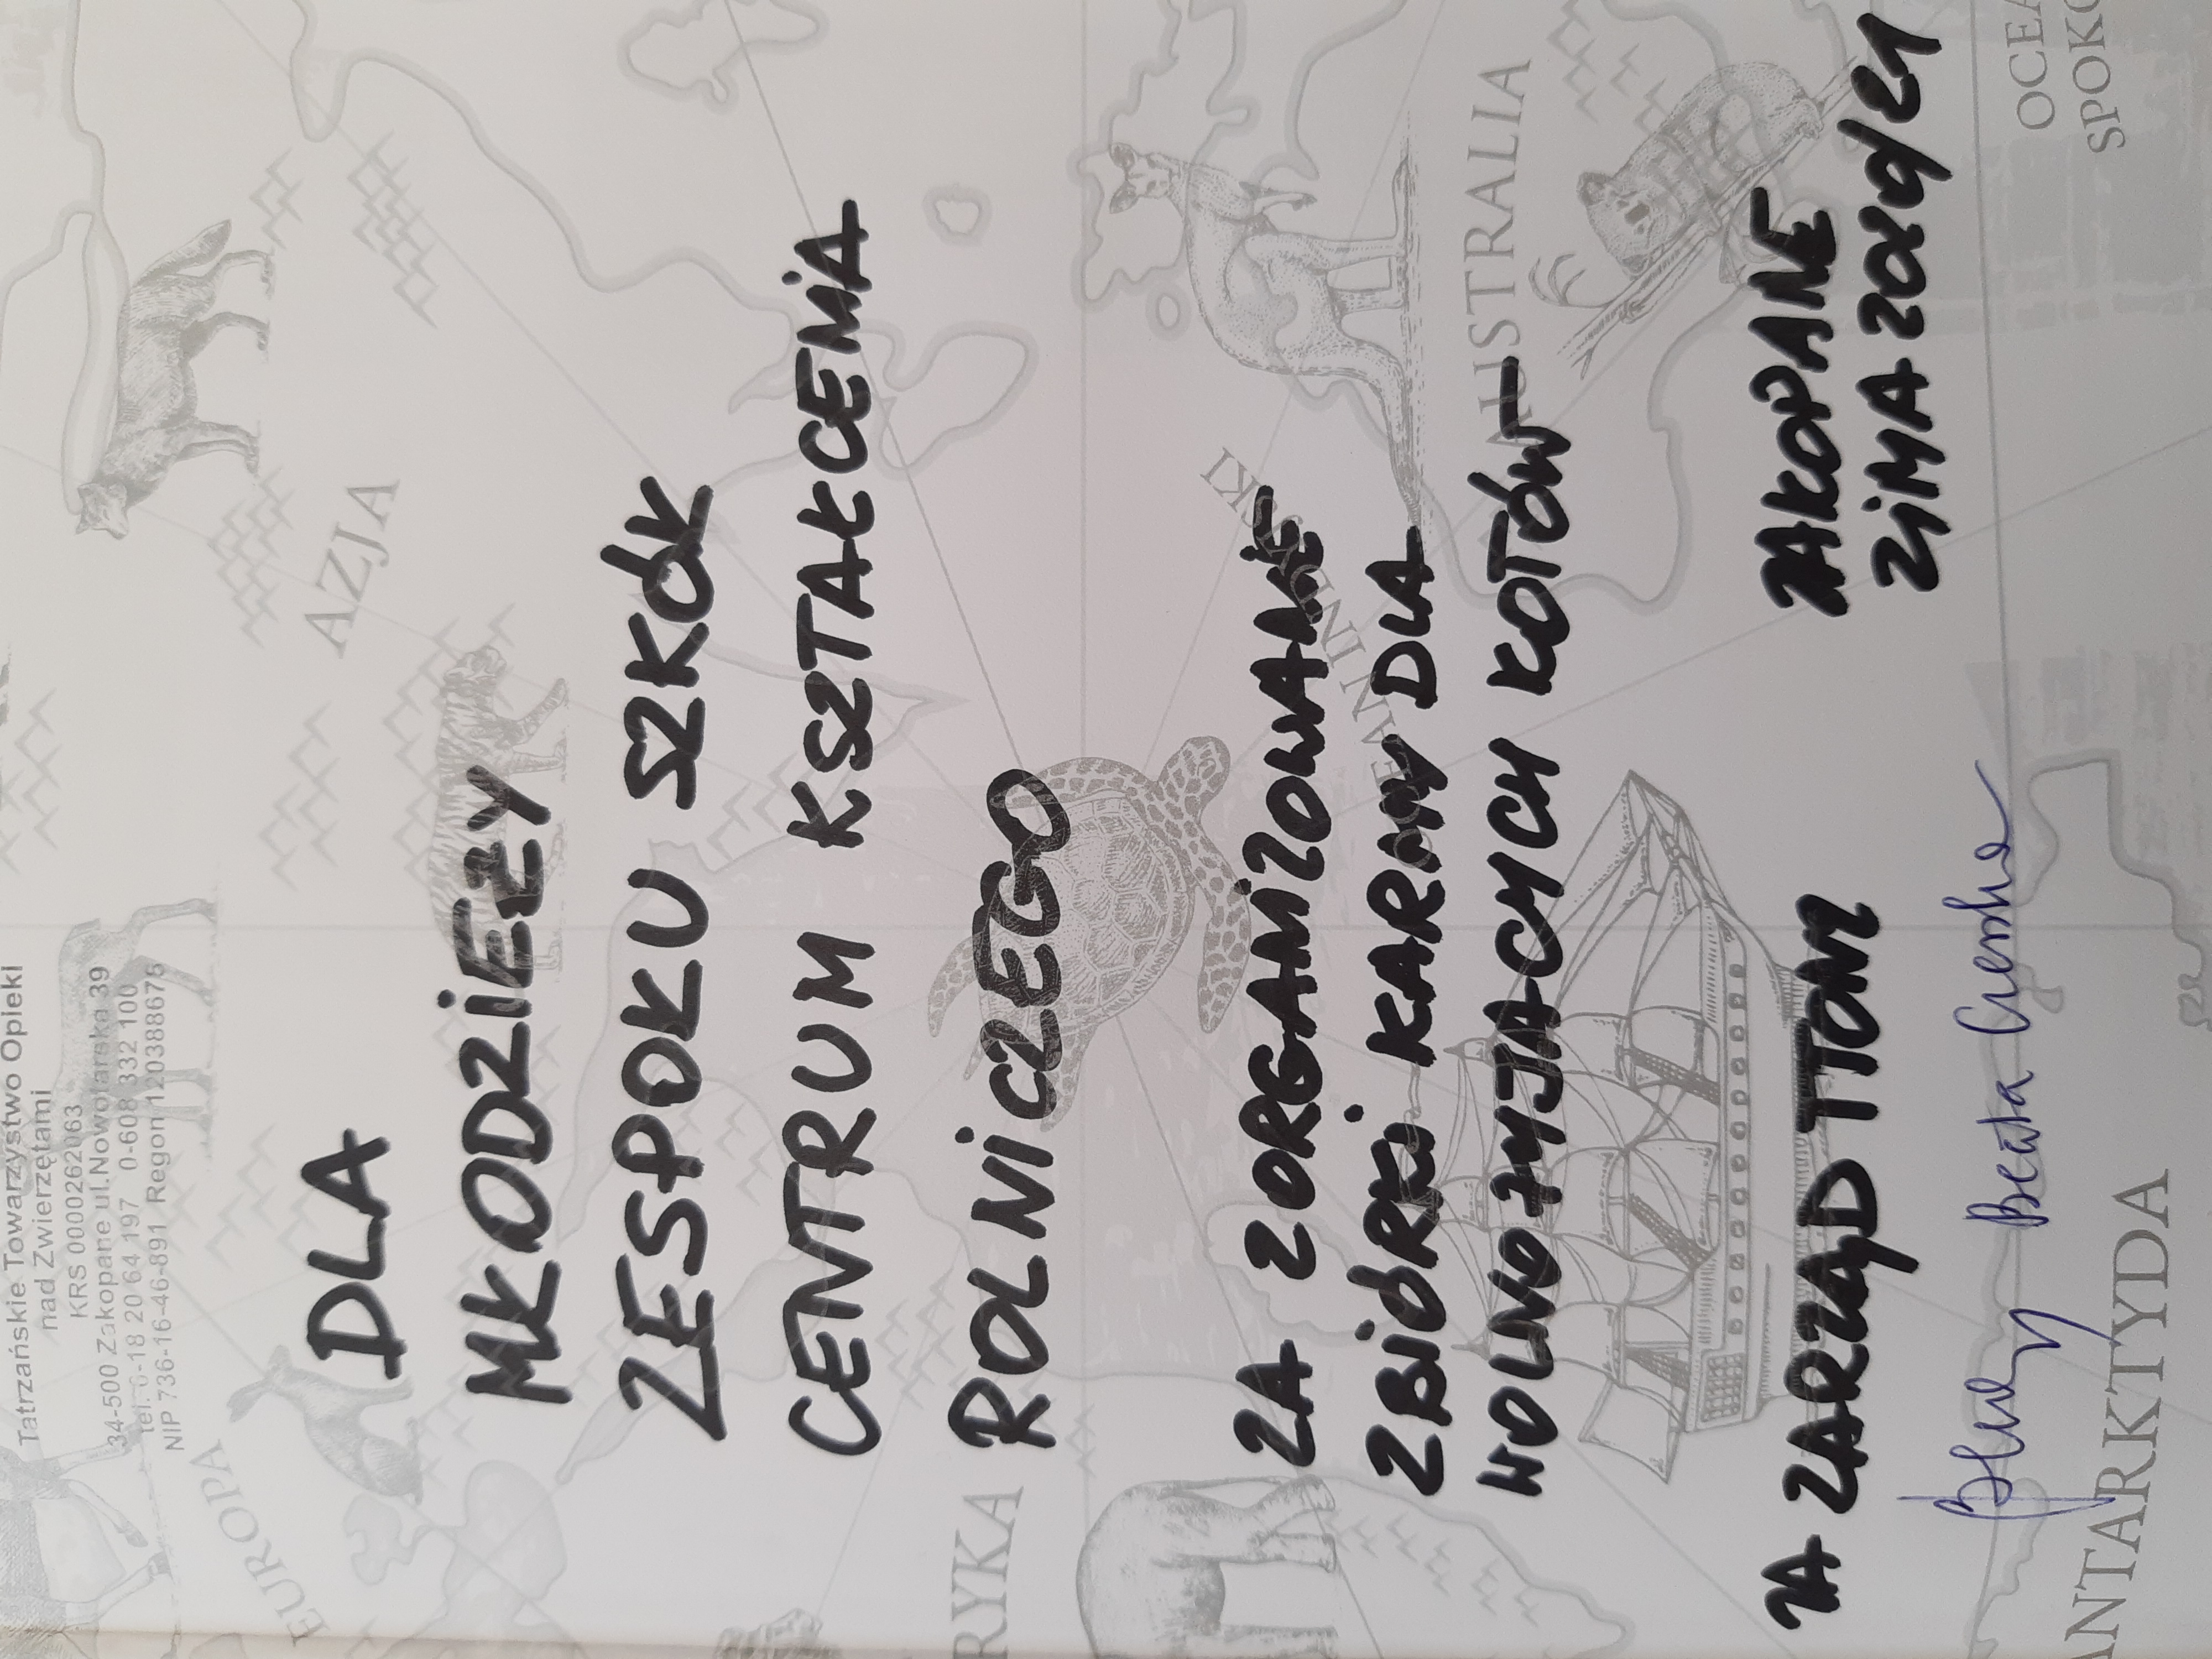 Tatrzańskie Towarzystwo Opieki
nad Zwierzętami
KRS 0000262063
34-500 Zakopane ul.Nowotarska 39
tel. 0-18 20 64 197 0-608 332 100
NIP 736-16-46-891 Regon 120388675
DLA
MŁODZIEŻY
ZESPOŁU SZKÓŁ
CENTRUM KSZTAŁCENIA
ROLNICZEGO
ZA ZORGANIZOWANIE
ZBIÓRKI KARMY DLA
WOLNOŻYJĄCYCH KOTÓW
ZAKOPANE
ZIMA 2020/21
ZA ZARZĄD TTONZ
Beata
EUROPA
AZJA
RYKA
OCEAN INDYJSKI
AUSTRALIA
OCEA
SPOKO
ANTARKTYDA